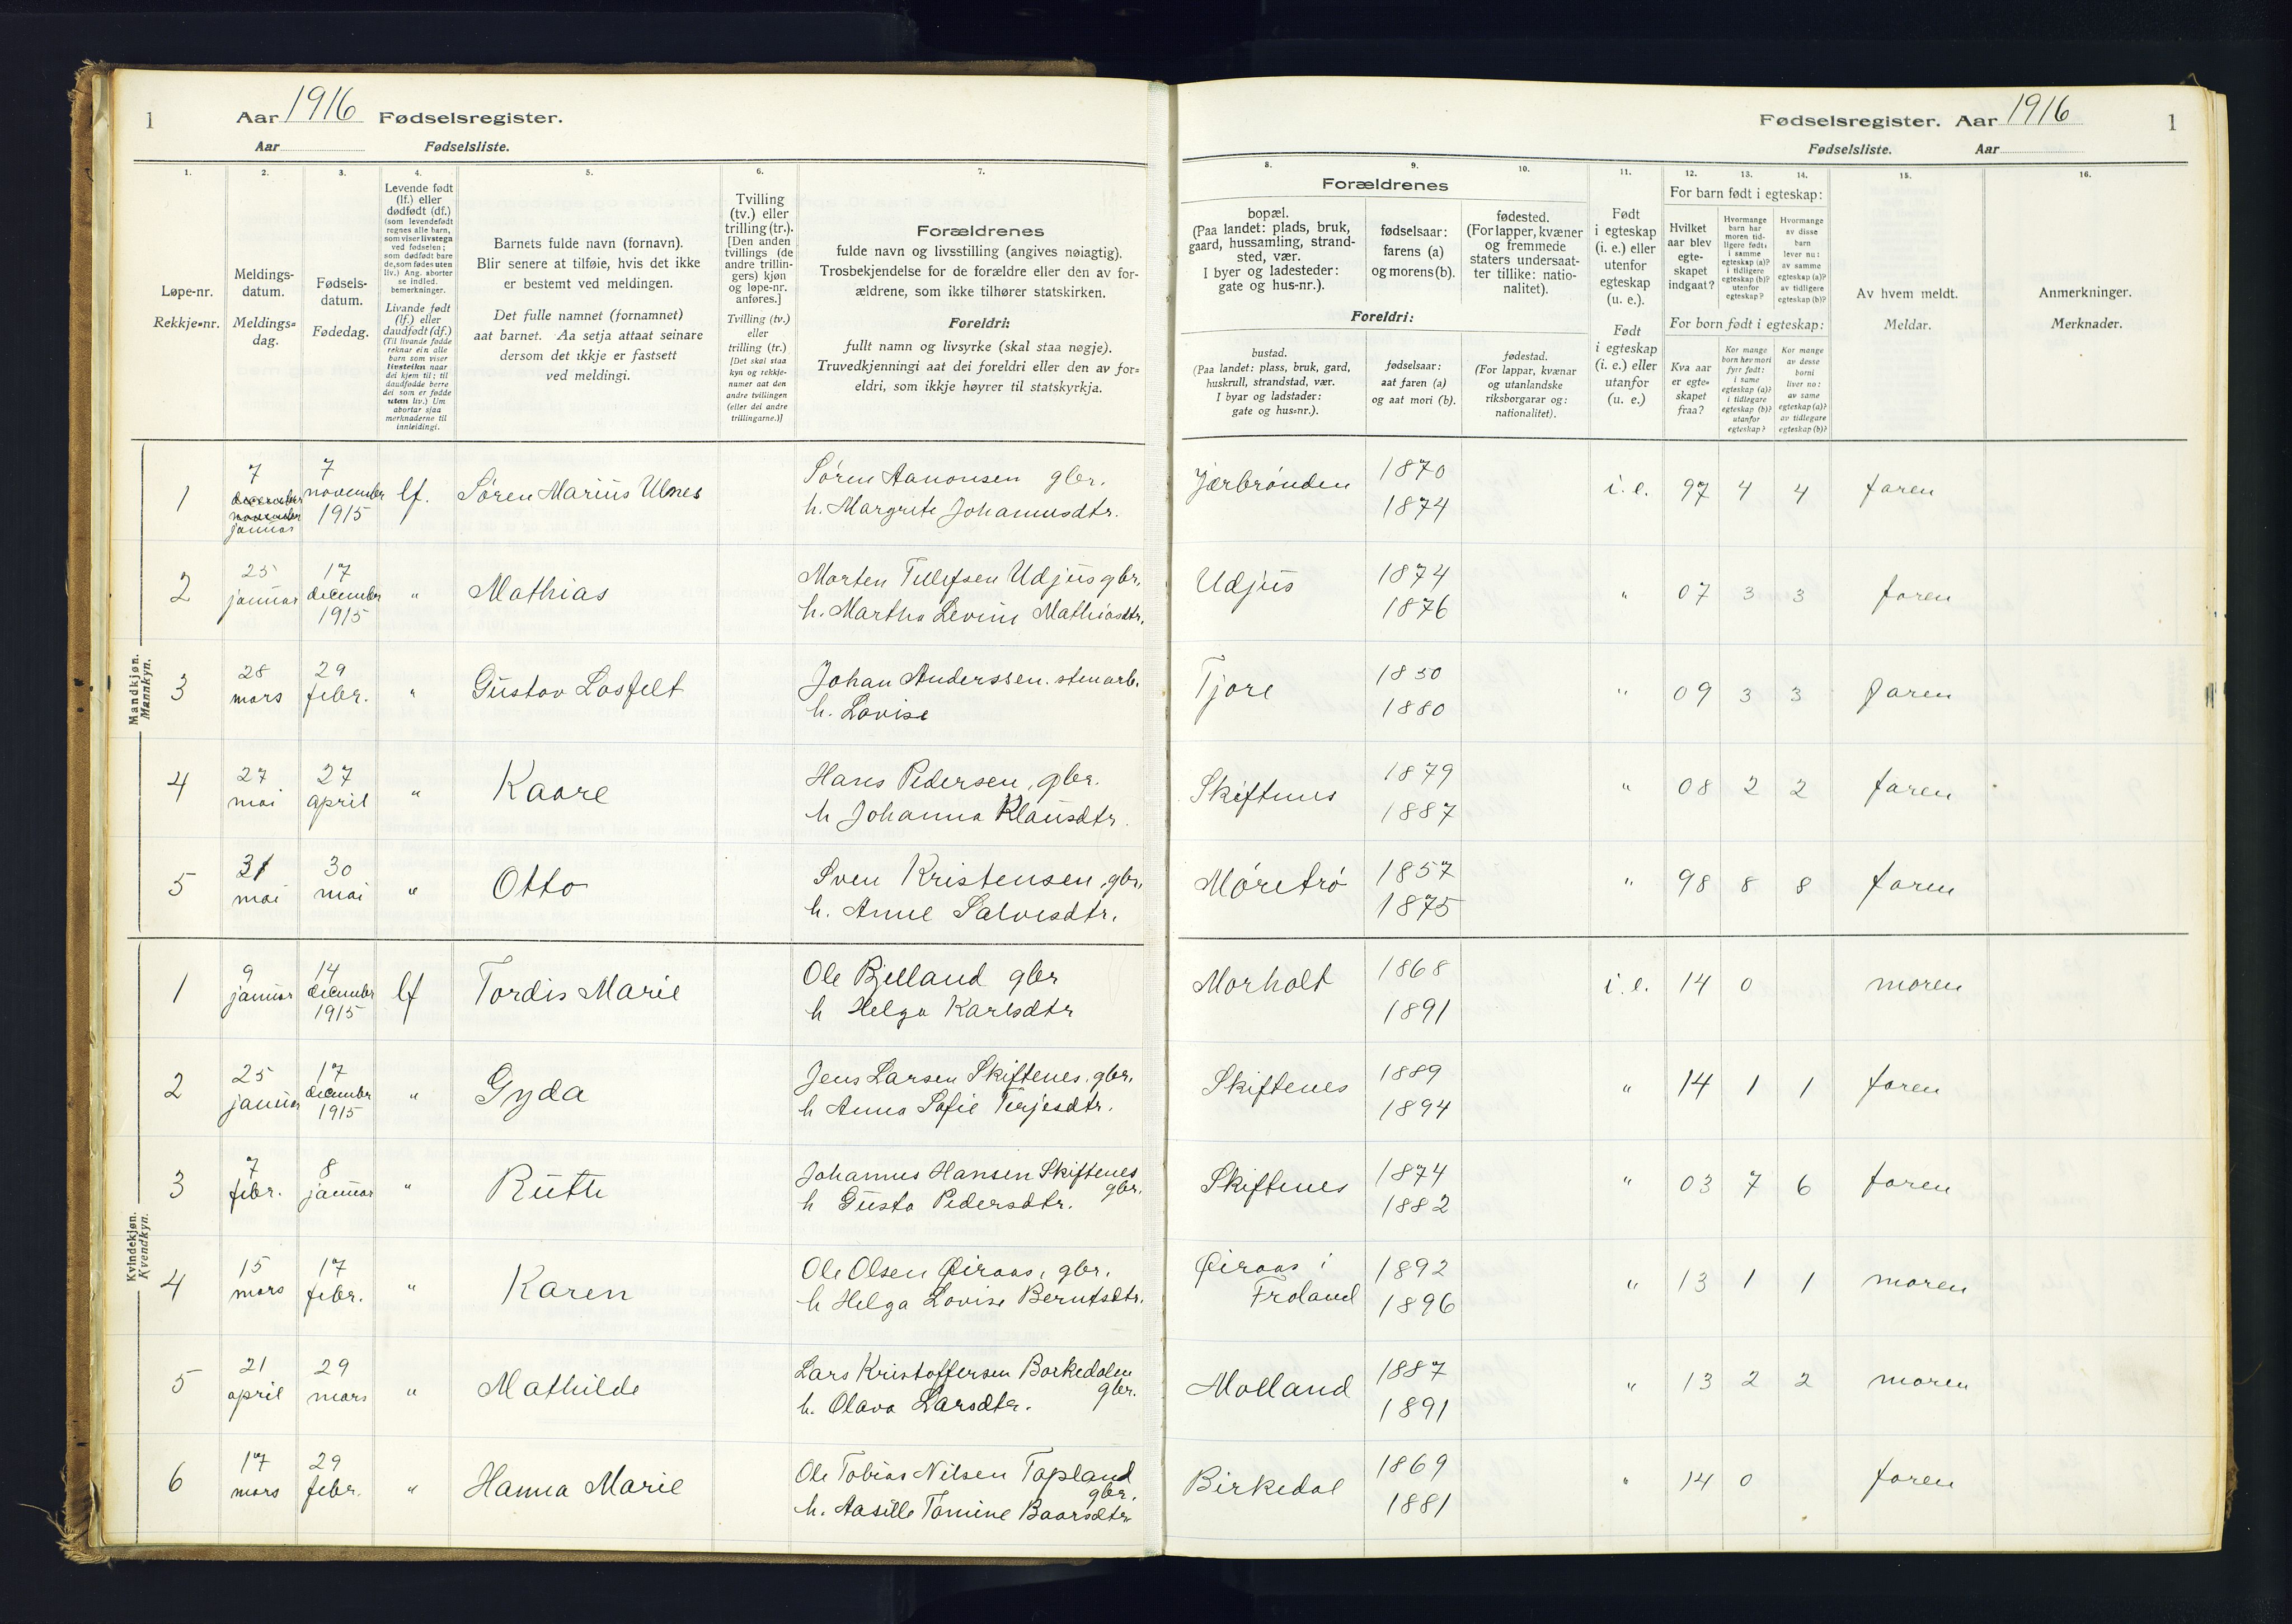 1 Aar 1916 Fødselsregister.
Aar Fødselsliste.
Fødselsregister. Aar 1916 1
Fødselsliste. Aar
1. 2. 3. 4. 5. 6. 7.
Løpe-nr.
Rekkje-nr.
Meldings-
datum.
Meldings-
dag.
Fødsels-
datum.
Fødedag.
Levende født
(lf.) eller
dødfødt (df.)
(som levendefødt
regnes alle barn,
som viser livstegn
ved fødselen;
som dødfødt bare
de, som fødes uten
liv.) Ang. aborter
se indled.
bemerkninger.
Livande født
(lf.) eller
daudfødt (df.)
(Til livande fødde
reknar ein alle
born som viser
livsteikn naar
dei kjem til; til
daudfødde berre
dei som er fødde
utan liv.) Um
abortar sjaa
merknaderne til
innleidingi.
Barnets fulde navn (fornavn).
Blir senere at tilføie, hvis det ikke
er bestemt ved meldingen.
Det fulle namnet (fornamnet)
aat barnet. Aa setja attaat seinare
dersom det ikkje er fastsett
ved meldingi.
Tvilling
(tv.) eller
trilling (tr.).
[Den anden
tvillings (de
andre trillin-
gers) kjøn
og løpe-nr.
anføres.]
Tvilling (tv.)
eller
trilling (tr.)
[Det skal staa
kyn og rekkje-
numer aat den
andre tvillingen
(eller dei andre
trillingarne.)]
Forældrenes
fulde navn og livsstilling (angives nøiagtig).
Trosbekjendelse for de forældre eller den av for-
ældrene, som ikke tilhører statskirken.
Foreldri:
fullt namn og livsyrke (skal staa nøgje).
Truvedkjenningi aat dei foreldri eller den av for-
eldri, som ikkje høyrer til statskyrkja.
8. 9. 10. 11. 12. 13. 14. 15. 16.
Forældrenes
bopæl.
(Paa landet: plads, bruk,
gaard, hussamling, strand-
sted, vær.
I byer og ladesteder:
gate og hus-nr.).
fødselsaar:
farens (a)
og morens (b).
fødested.
(For lapper, kvæner
og fremmede
staters undersaat-
ter tillike: natio-
nalitet).
Foreldri:
bustad.
(Paa landet: plass, bruk, gard,
huskrull, strandstad, vær.
I byar og ladstader:
gate og hus-nr.).
fødselsaar:
aat faren (a)
og aat mori (b).
fødestad.
(For lappar, kvænar
og utanlandske
riksborgarar og:
nationalitet).
Født
i egteskap
(i. e.) eller
utenfor
egteskap
(u. e.).
Født
i egteskap
(i. e.) eller
utanfor
(u. e.)
For barn født i egteskap:
Hvilket
aar blev
egte-
skapet
indgaat?
Hvormange
barn har
moren tid-
ligere født:
i samme
egteskap (a)?
i tidligere
egteskap (b)?
utenfor
egteskap?
Hvormange
av disse
barn
lever nu:
av samme
egteskap (a)?
av tidligere
egteskap (b)?
For born født i egteskap:
Kva aar
er egte-
skapet
fraa?
Kor mange
born hev mori
fyrr født:
i same
egteskap (a)?
i tidlegare
egteskap (b)?
utanfor
egteskap?
Kor mange
av desse
borni
liver no:
av same
egteskap (a)?
av tidlegare
egteskap (b)?
Av hvem meldt.
Meldar.
Anmerkninger.
Merknader.
Mandkjøn.
Mannkyn.
1 7 december november januar 7 november 1915 lf. Søren Marius Ulnes Søren Aanonsen gbr. h. Margrete Johannesdtr. Jærbrønden 1870 1874 i. e. 97 4 4 faren
2 25 januar 17 december 1915 " Mathias Morten Tellefsen Udjus gbr. h. Martha Levine Mathiasdtr. Udjus 1874 1876 " 07 3 3 faren
3 28 mars 29 febr. " Gustav Losfelt Johan Anderssen. stenarb. h. Lovise Tjore 1850 1880 " 09 3 3 faren
4 27 mai 27 april " Kaare Hans Pedersen, gbr. h Johanna Klausdtr. Skiftenes 1879 1887 " 08 2 2 faren
5 31 mai 30 mai " Otto Sven Kristensen, gbr. h. Anne Salvesdtr. Møretrø 1857 1875 " 98 8 8 faren
Kvindekjøn.
Kvendkyn.
1 9 januar 14 december 1915 lf Tordis Marie Ole Bjelland gbr h Helga Karlsdtr Morholt 1868 1891 i. e. 14 0 moren
2 25 januar 17 december 1915 " Gyda Jens Larsen Skiftenes, gbr. h Anna Sofie Terjesdtr. Skiftenes 1889 1894 " 14 1 1 faren
3 7 febr. 8 januar " Ruth Johannes Hansen Skiftenes gbr. h Gusta Pedersdtr. Skiftenes 1874 1882 " 03 7 6 faren
4 15 mars 17 febr. " Karen Ole Olsen Øiraas, gbr. h Helga Lovise Berntsdtr. Øiraas i Froland 1892 1896 " 13 1 1 moren
5 21 april 29 mars " Mathilde Lars Kristoffersen Borkedalen gbr. h. Olava Larsdtr. Molland 1887 1891 " 13 2 2 moren
6 17 mars 29 febr. " Hanna Marie Ole Tobias Nilsen Topland gbr. h. Aasille Tomine Baarsdtr. Birkedal 1869 1881 " 14 0 faren